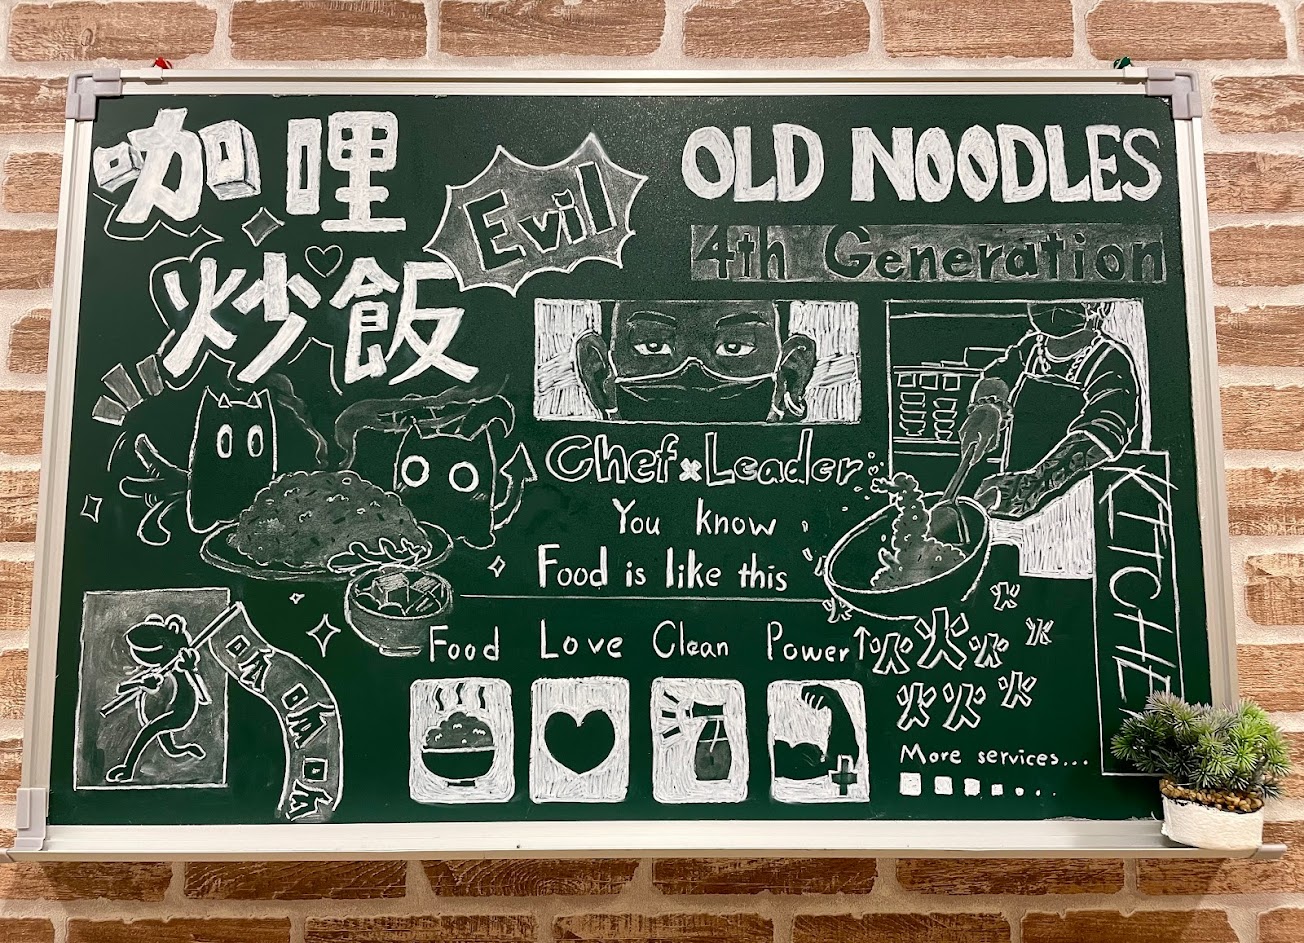 咖哩
炒飯
Evil
OLD NOODLES
4th Generation
Chef x Leader
You know
Food is like this
KITCHE
Food Love Clean Power↑
火
火
火火火火
火火火火
More services...